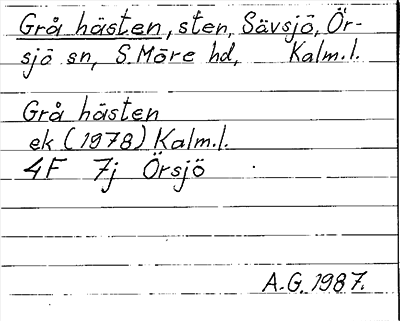 Grå hästen, sten, Sävsjö, Ör-
sjö sn, S. Möre hd, Kalm.l.
Grå hästen
ek (1978) Kalm.l.
4F 7j Örsjö
A.G. 1987.